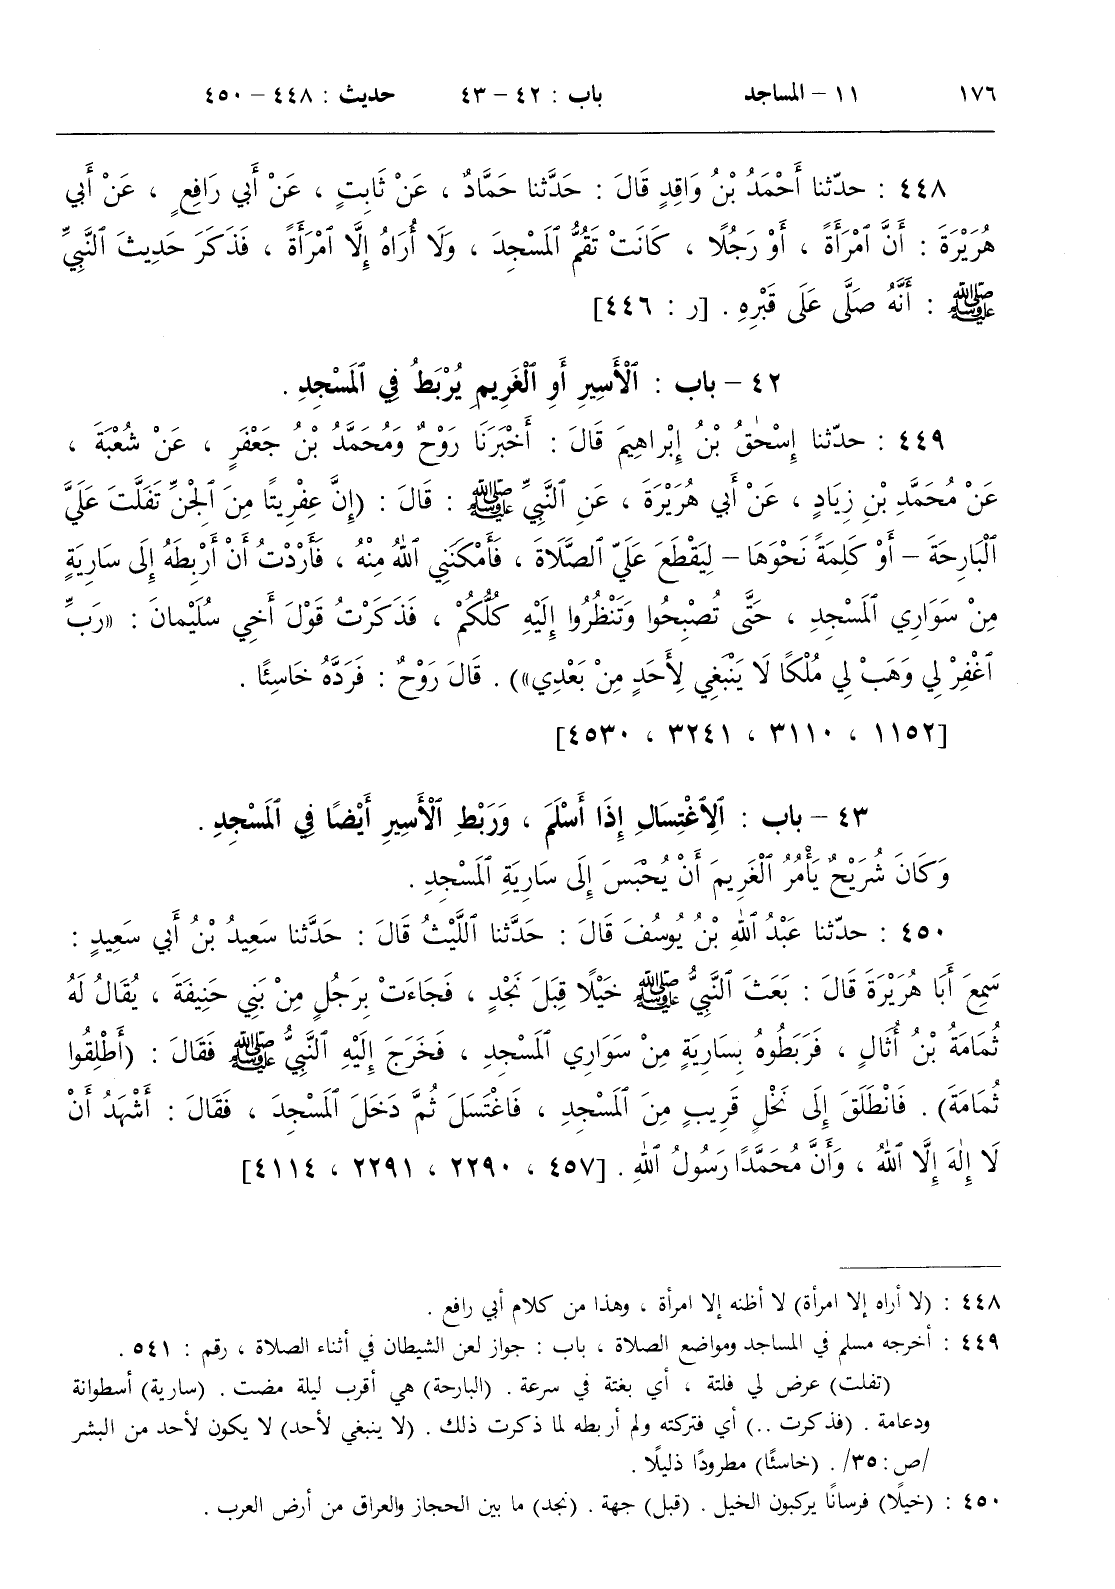 ١٧٦ ١١ – المساجد باب : ٤٢ – ٤٣ حديث : ٤٤٨ – ٤٥٠
٤٤٨ : حدّثنا أَحْمَدُ بْنُ وَاقِدٍ قَالَ : حَدَّثنا حَمَّادٌ ، عَنْ ثَابِتٍ ، عَنْ أَبي رَافِعٍ ، عَنْ أَبي
هُرَيْرَةَ : أَنَّ ٱمْرَأَةً ، أَوْ رَجُلًا ، كَانَتْ تَقُمُّ ٱلْمَسْجِدَ ، وَلَا أُرَاهُ إِلَّا ٱمْرَأَةً ، فَذَكَرَ حَدِيثَ ٱلنَّبِيِّ
ﷺ : أَنَّهُ صَلَّى عَلَى قَبْرِهِ . [ر : ٤٤٦]
٤٢ – باب : ٱلْأَسِيرِ أَوِ ٱلْغَرِيمِ يُرْبَطُ فِي ٱلْمَسْجِدِ .
٤٤٩ : حدّثنا إِسْحٰقُ بْنُ إِبْراهِيمَ قَالَ : أَخْبَرَنَا رَوْحٌ وَمُحَمَّدُ بْنُ جَعْفَرٍ ، عَنْ شُعْبَةَ ،
عَنْ مُحَمَّدِ بْنِ زِيَادٍ ، عَنْ أَبي هُرَيْرَةَ ، عَنِ ٱلنَّبِيِّ ﷺ : قَالَ : (إِنَّ عِفْرِيتًا مِنَ ٱلْجِنِّ تَفَلَّتَ عَلَيَّ
ٱلْبَارِحَةَ – أَوْ كَلِمَةً نَحْوَهَا – لِيَقْطَعَ عَلَيَّ ٱلصَّلَاةَ ، فَأَمْكَنَنِي ٱللهُ مِنْهُ ، فَأَرَدْتُ أَنْ أَرْبِطَهُ إِلَى سَارِيَةٍ
مِنْ سَوَارِي ٱلْمَسْجِدِ ، حَتَّى تُصْبِحُوا وَتَنْظُرُوا إِلَيْهِ كُلُّكُمْ ، فَذَكَرْتُ قَوْلَ أَخِي سُلَيْمانَ : «رَبِّ
ٱغْفِرْ لِي وَهَبْ لِي مُلْكًا لَا يَنْبَغِي لِأَحَدٍ مِنْ بَعْدِي») . قَالَ رَوْحٌ : فَرَدَّهُ خَاسِئًا .
[١١٥٢ ، ٣١١٠ ، ٣٢٤١ ، ٤٥٣٠]
٤٣ – باب : ٱلِٱغْتِسَالِ إِذَا أَسْلَمَ ، وَرَبْطِ ٱلْأَسِيرِ أَيْضًا فِي ٱلْمَسْجِدِ .
وَكَانَ شُرَيْحٌ يَأْمُرُ ٱلْغَرِيمَ أَنْ يُحْبَسَ إِلَى سَارِيَةِ ٱلْمَسْجِدِ .
٤٥٠ : حدّثنا عَبْدُ ٱللهِ بْنُ يُوسُفَ قَالَ : حَدَّثنا ٱللَّيْثُ قَالَ : حَدَّثنا سَعِيدُ بْنُ أَبي سَعِيدٍ :
سَمِعَ أَبَا هُرَيْرَةَ قَالَ : بَعَثَ ٱلنَّبِيُّ ﷺ خَيْلًا قِبَلَ نَجْدٍ ، فَجَاءَتْ بِرَجُلٍ مِنْ بَنِي حَنِيفَةَ ، يُقَالُ لَهُ
ثُمَامَةُ بْنُ أُثَالٍ ، فَرَبَطُوهُ بِسَارِيَةٍ مِنْ سَوَارِي ٱلْمَسْجِدِ ، فَخَرَجَ إِلَيْهِ ٱلنَّبِيُّ ﷺ فَقَالَ : (أَطْلِقُوا
ثُمَامَةَ) . فَانْطَلَقَ إِلَى نَخْلٍ قَرِيبٍ مِنَ ٱلْمَسْجِدِ ، فَاغْتَسَلَ ثُمَّ دَخَلَ ٱلْمَسْجِدَ ، فَقَالَ : أَشْهَدُ أَنْ
لَا إِلٰهَ إِلَّا ٱللهُ ، وَأَنَّ مُحَمَّدًا رَسُولُ ٱللهِ . [٤٥٧ ، ٢٢٩٠ ، ٢٢٩١ ، ٤١١٤]
٤٤٨ : (لا أراه إلا امرأة) لا أظنه إلا امرأة ، وهذا من كلام أبي رافع .
٤٤٩ : أخرجه مسلم في المساجد ومواضع الصلاة ، باب : جواز لعن الشيطان في أثناء الصلاة ، رقم : ٥٤١ .
(تفلت) عرض لي فلتة ، أي بغتة في سرعة . (البارحة) هي أقرب ليلة مضت . (سارية) أسطوانة
ودعامة . (فذكرت ..) أي فتركته ولم أربطه لما ذكرت ذلك . (لا ينبغي لأحد) لا يكون لأحد من البشر
/ص : ٣٥/ . (خاسئًا) مطرودًا ذليلًا .
٤٥٠ : (خيلًا) فرسانًا يركبون الخيل . (قبل) جهة . (نجد) ما بين الحجاز والعراق من أرض العرب .